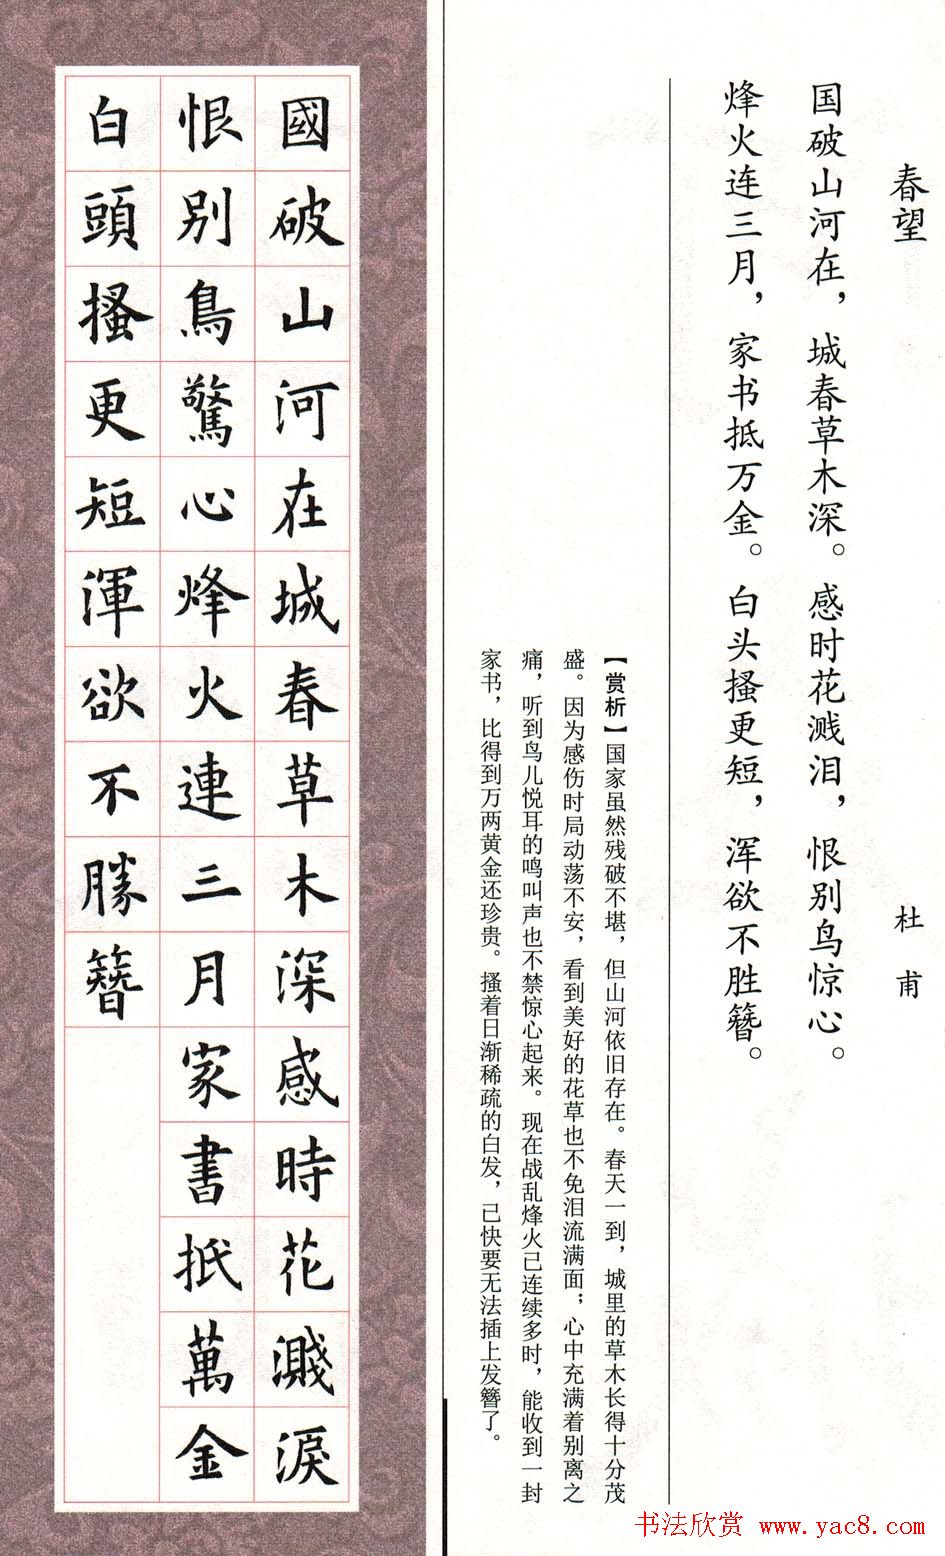 春望
杜甫
国破山河在，城春草木深。感时花溅泪，恨别鸟惊心。
烽火连三月，家书抵万金。白头搔更短，浑欲不胜簪。
【赏析】国家虽然残破不堪，但山河依旧存在。春天一到，城里的草木长得十分茂
盛。因为感伤时局动荡不安，看到美好的花草也不免泪流满面；心中充满着别离之
痛，听到鸟儿悦耳的鸣叫声也不禁惊心起来。现在战乱烽火已连续多时，能收到一封
家书，比得到万两黄金还珍贵。搔着日渐稀疏的白发，已快要无法插上发簪了。
國破山河在城春草木深感時花濺淚
恨别鳥驚心烽火連三月家書抵萬金
白頭搔更短渾欲不勝簪
书法欣赏 www.yac8.com